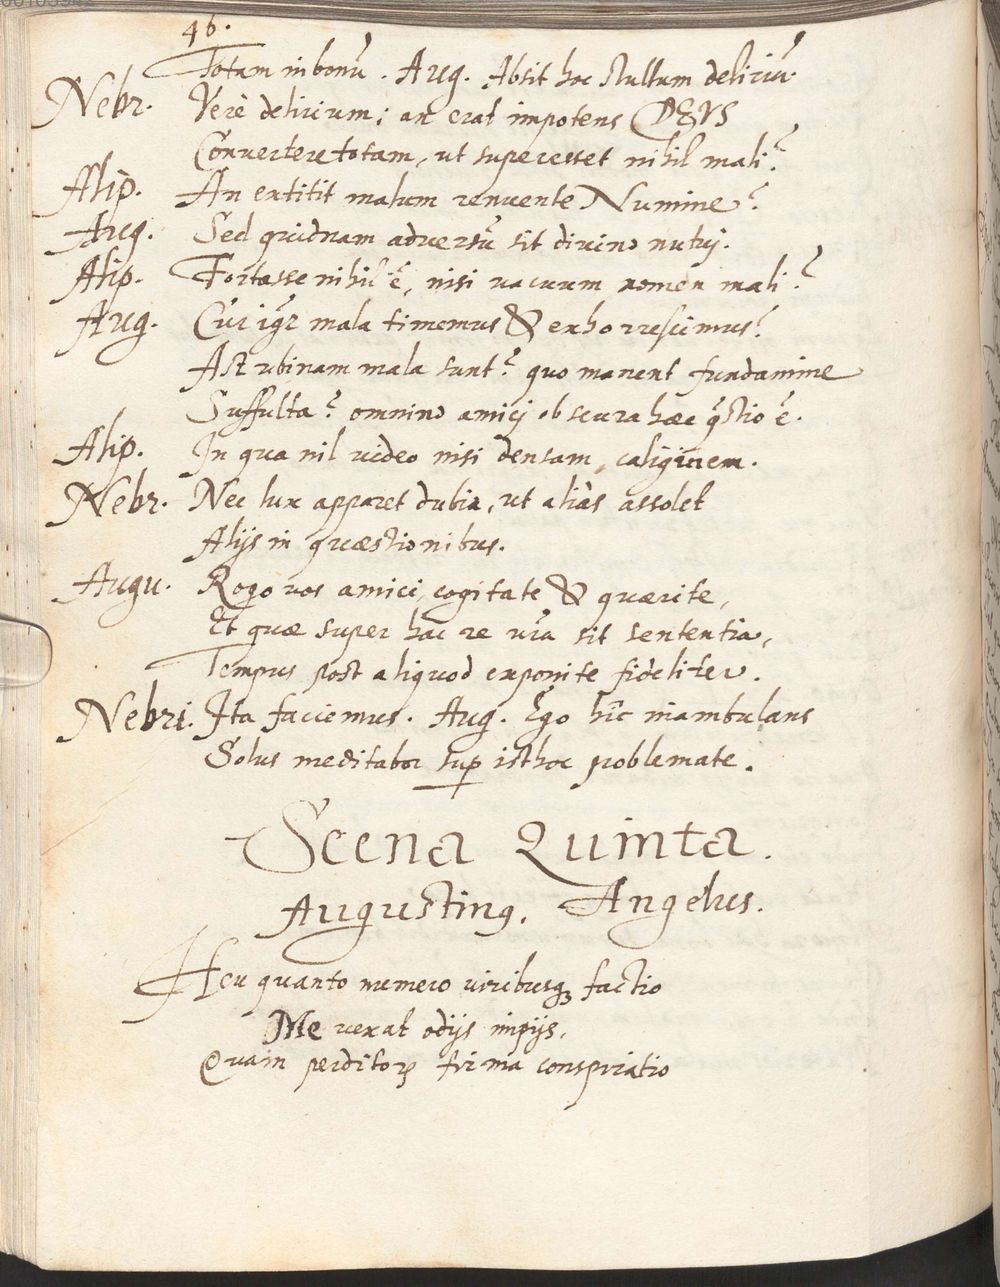 46.
Totam in bonū. Aug. Absit hoc stultum deliriū.
Nebr. Verè delirium; an erat impotens DEVS
Convertere totam, ut superesset nihil mali?
Alip. An extitit malum renuente Numine?
Aug. Sed quidnam adversū sit divino nutui.
Alip. Fortasse nihil ē, nisi vacuum nomen mali?
Aug. Cur igr mala timemus & exhorrescimus?
Ast ubinam mala sunt? quo manent fundamine
Suffulta? omnino amici obscura haec q̄stio ē.
Alip. In qua nil video nisi densam, caliginem.
Nebr. Nec lux apparet dubia, ut aliàs assolet
Alijs in quæstionibus.
Augu. Rogo vos amici, cogitate & quærite,
Et quæ super hac re vr̄a sit sententia,
Tempus post aliquod exponite fideliter.
Nebri. Ita faciemus. Aug. Ego hîc inambulans
Solus meditabor sup isthoc problemate.
Scena Quinta.
Augustinq. Angelus.
Heu quanto numero viribusq; factio
Me vexat odijs impijs,
Quam perditorꝝ firma conspiratio